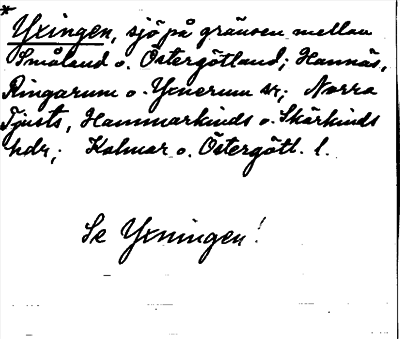 * Yxingen, sjö på gränsen mellan
Småland o. Östergötland; Hannäs,
Ringarum o. Yxnerum sr; Norra
Tjusts, Hammarkinds o. Skärkinds
hdr; Kalmar o. Östergötl. l.
Se Yxningen!